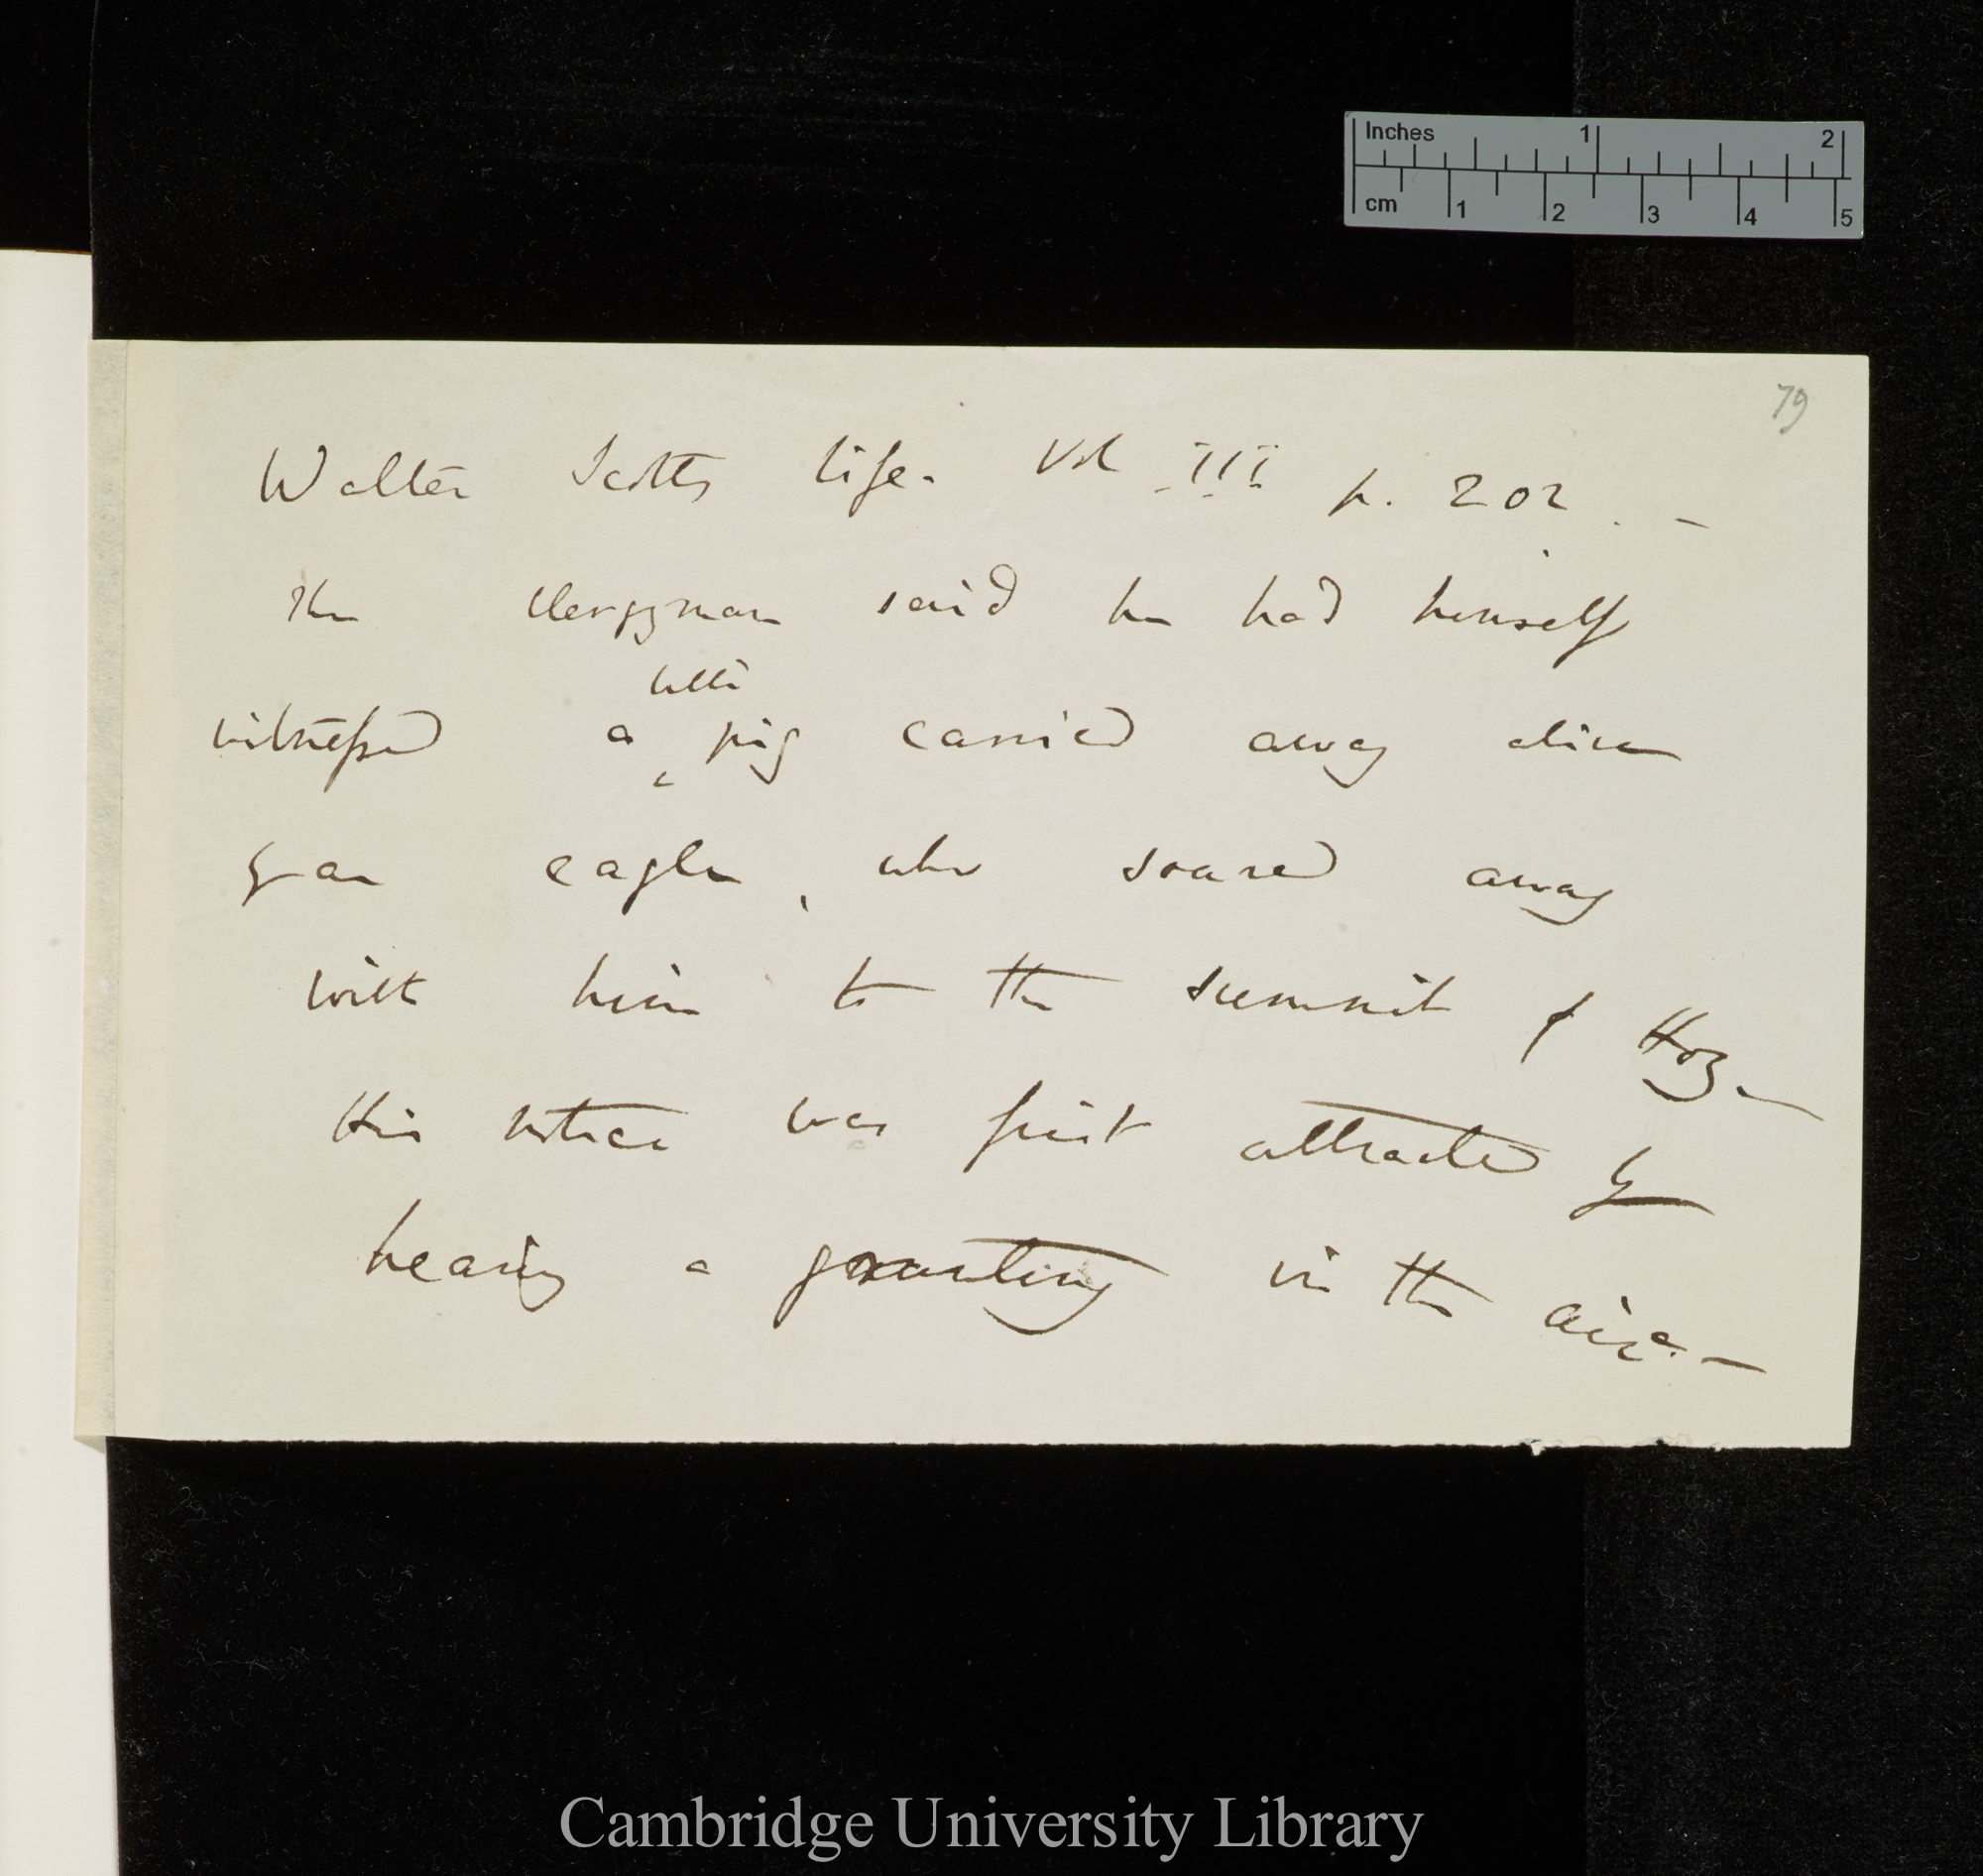 Inches 1 2
cm 1 2 3 4 5
79
Walter Scotts life. Vol III p. 202. —
The clergyman said he had himself
little
witnessed a pig carried away alive
by an eagle, who soared away
with him to the summit of Hoy. —
His notice was first attracted by
hearing a grunting in the air. —
Cambridge University Library